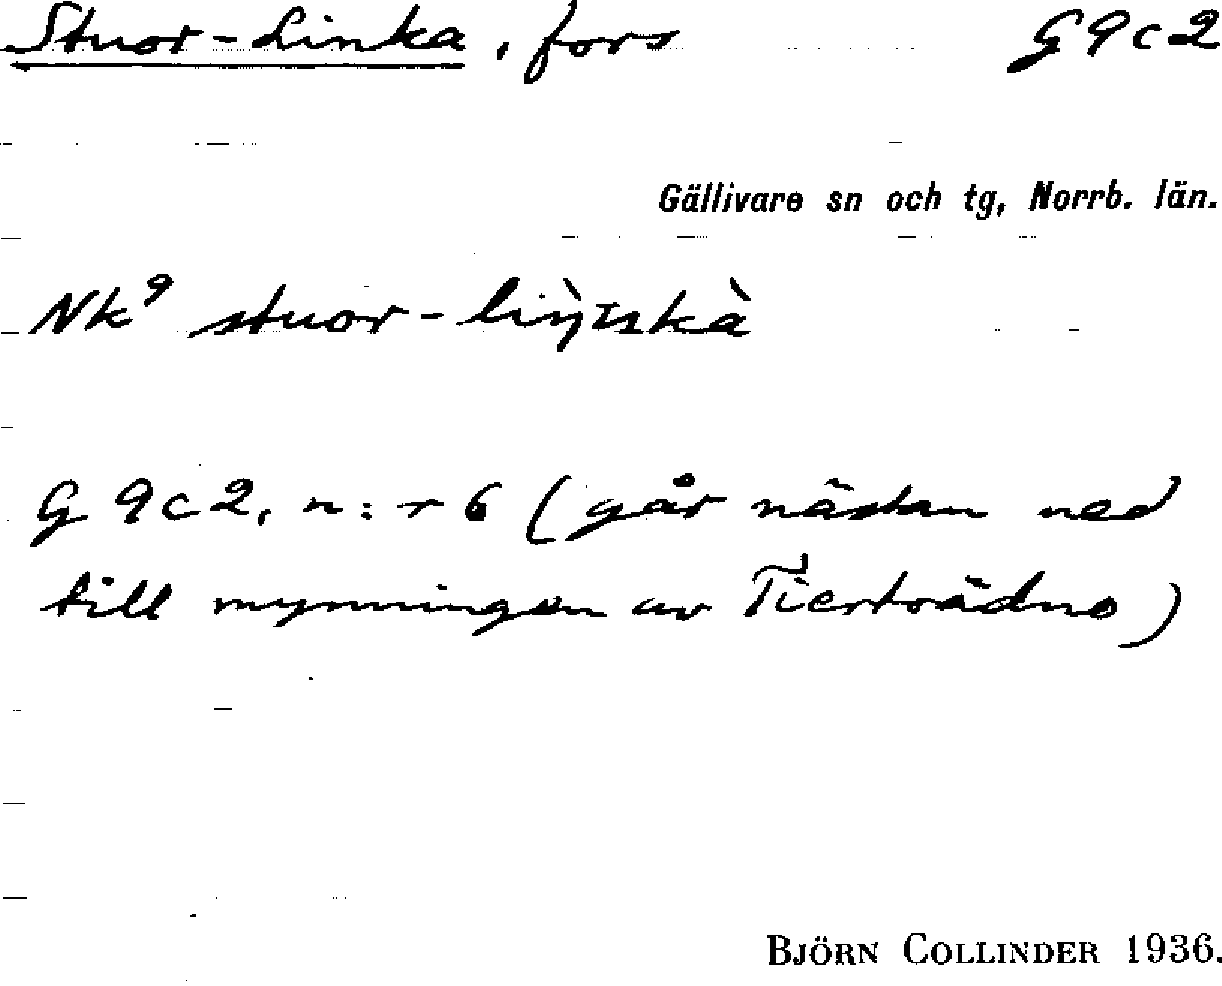 Stuor-Linka, fors G9c2
Gällivare sn och tg, Norrb. län.
Nk⁹ stuor-
G 9c2, n: r 6 (går nästan ned
till mynningen av
BJÖRN COLLINDER 1936.